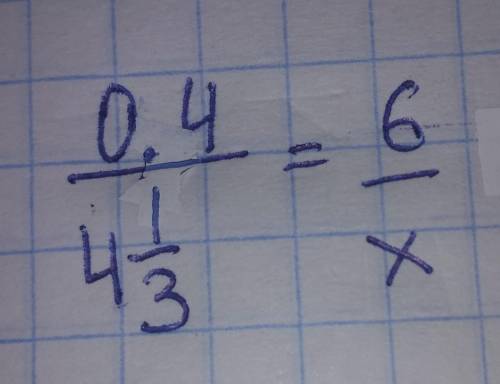 0.4 / 4 1/3 = 6 / x